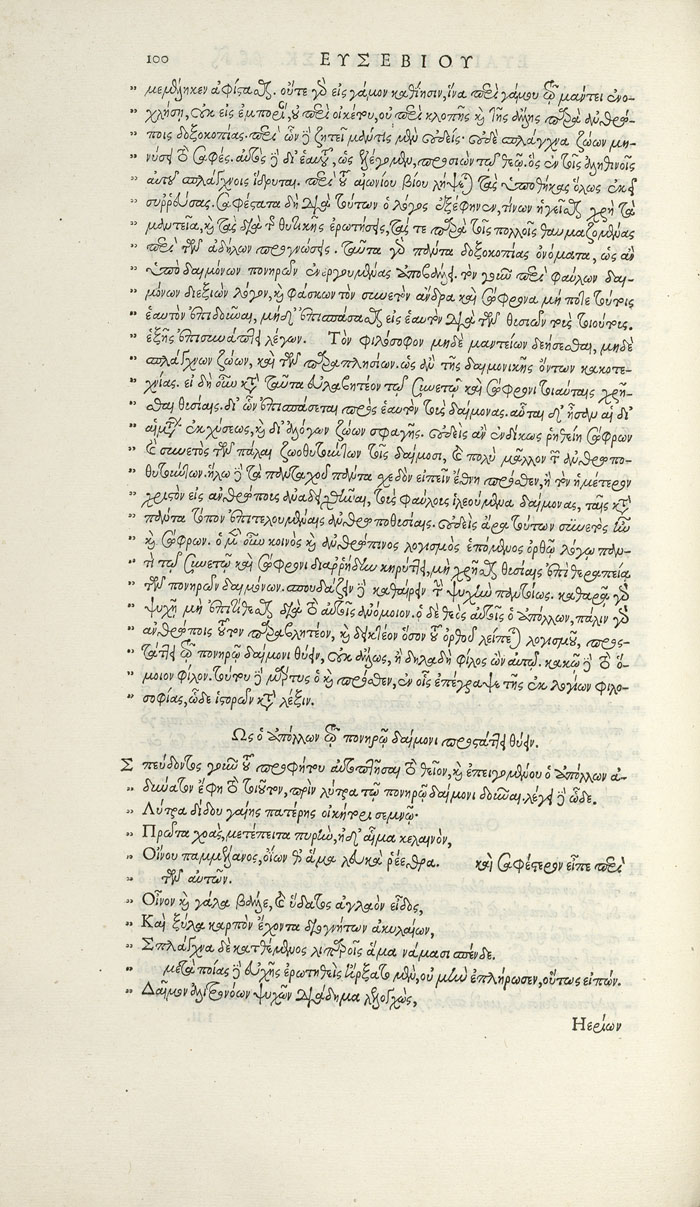 100 ΕΥΣΕΒΙΟΥ
" μεμάθηκεν ἀφίσταθαι. οὔτε γὸ εἰς γάμον καθίησιν, ἵνα περὶ γάμου τῷ μάντει ἐνο-
" χλήσῃ, οὐκ εἰς ἐμπορίαν, ἢ περὶ οἰκέτου, οὐ περὶ κλοπῆς καὶ τῆς ἄλλης παρὰ ἀνθρώ-
" ποις δοξοκοπίας. περὶ ὧν δὲ ζητεῖ μάντις μὲν οὐδείς. οὐδὲ σπλάγχνα ζώων μη-
" νύσει τὸ σαφές. αὐτὸς δὲ δι' ἑαυτοῦ, ὡς λέγομεν, προσιὼν τῷ θεῷ, ὃς ἐν τοῖς ἀληθινοῖς
" αὐτοῦ σπλάγχνοις ἵδρυται. περὶ τοῦ αἰωνίου βίου λήψεται τὰς ὑποθήκας ὅλως ἐκεῖ
" συρρεύσας. σαφέστατα δὴ διὰ τούτων ὁ λόγος ἐξέφηνεν, τίνων ἡγεῖσθαι χρὴ τὰ
" μαντεῖα, καὶ τὰς διὰ τῆς θυτικῆς ἐρωτήσεις, τάς τε παρὰ τοῖς πολλοῖς θαυμαζομένας
" περὶ τῶν ἀδήλων προγνώσεις. ταῦτα γὰρ πάντα δοξοκοπίας ὀνόματα, ὡς ἂν
" ὑπὸ δαιμόνων πονηρῶν ἐνεργουμένας ἀποβάλλει. τὸν γοῦν περὶ φαύλων δαι-
" μόνων διεξιὼν λόγον, καὶ φάσκων τὸν συνετὸν ἄνδρα καὶ σώφρονα μή ποτε τούτοις
" ἑαυτὸν ἐπιδοῦναι, μηδ' ἐπισπάσασθαι εἰς ἑαυτὸν διὰ τῶν θυσιῶν τοὺς τοιούτους.
" ἑξῆς ἐπισυνάπτει λέγων. Τὸν φιλόσοφον μηδὲ μαντείων δεήσεσθαι, μηδὲ
" σπλάγχνων ζώων, καὶ τῶν παραπλησίων. ὡς ἂν τῆς δαιμονικῆς ὄντων κακοτε-
" χνίας. εἰ δὴ οὖν κατὰ ταῦτα εὐλαβητέον τῷ συνετῷ καὶ σώφρονι τοιαύταις χρῆ-
" σθαι θυσίαις. δι' ὧν ἐπισπάσεται πρὸς ἑαυτὸν τοὺς δαίμονας. αὗται δ' ἦσαν αἱ δι'
" αἱμάτων ἐκχύσεως, καὶ δι' ἀλόγων ζώων σφαγῆς. οὐδεὶς ἂν ἐνδίκως ῥηθείη σώφρων
" καὶ συνετὸς τῶν πάλαι ζωοθυτούντων τοῖς δαίμοσι, καὶ πολὺ μᾶλλον τῶν ἀνθρωπο-
" θυτούντων. ἤλω δὲ τὰ πανταχοῦ πάντα σχεδὸν εἰπεῖν ἔθνη πρόσθεν, ἢ τὸν ἡμέτερον
" χριστὸν εἰς ἀνθρώπους ἀναδειχθῆναι, τοὺς φαύλους ἱλεούμενα δαίμονας, ταῖς κατὰ
" πάντα τόπον ἐπιτελουμέναις ἀνθρωποθυσίαις. οὐδεὶς ἄρα τούτων συνετὸς ἦν
" καὶ σώφρων. ὁ μὲν οὖν κοινὸς καὶ ἀνθρώπινος λογισμὸς ἑπόμενος ὀρθῷ λόγῳ παν-
" τὶ τῷ συνετῷ καὶ σώφρονι διαρρήδην κηρύττει, μὴ χρῆσθαι θυσίαις ἐπὶ θεραπείᾳ
" τῶν πονηρῶν δαιμόνων. σπουδάζειν δὲ καθαίρειν τὴν ψυχὴν παντοίως. καθαρᾷ γὰρ
" ψυχῇ μὴ ἐπιτίθεσθαι διὰ τὸ αὐτοῖς ἀνόμοιον. ὁ δὲ θεὸς αὐτοῖς ὁ Ἀπόλλων, πάλιν γὰρ
" ἀνθρώποις τοῦτον παραβλητέον, καὶ δεικτέον ὅσον τοῦ ὀρθοῦ λείπεται λογισμοῦ, προσ-
" τάττει τῷ πονηρῷ δαίμονι θύειν, οὐκ ἄλλως, ἢ δηλαδὴ φίλος ὢν αὐτῷ. κακῷ δὲ τὸ ὅ-
" μοιον φίλον. τούτου δὲ μάρτυς ὁ καὶ πρόσθεν, ἐν οἷς ἐπέγραψε τῆς ἐκ λογίων φιλο-
" σοφίας, ὧδε ἱστορῶν κατὰ λέξιν.
Ὡς ὁ Ἀπόλλων τῷ πονηρῷ δαίμονι προστάττει θύειν.
Σπεύδοντος γοῦν τοῦ προφήτου αὐτοπτῆσαι τὸ θεῖον, καὶ ἐπειγομένου ὁ Ἀπόλλων ἀ-
" δύνατον ἔφη τὸ τοιοῦτον, πρὶν λύτρα τῷ πονηρῷ δαίμονι δοῦναι. λέγει δὲ ὧδε.
" Λύτρα δίδου γαίης πατέρης οἰκήτορι σεμνῷ·
" Πρῶτα χοὰς, μετέπειτα πυρὴν, ἠδ' αἷμα κελαινόν,
" Οἴνου παμμέλανος, οἴων θ' ἅμα λευκὰ ῥέεθρα. καὶ σαφέστερον εἶπε περὶ
" τῶν αὐτῶν.
" Οἶνον καὶ γάλα βάλλε, καὶ ὕδατος ἀγλαὸν εἶδος,
" Καὶ ξύλα καρπὸν ἔχοντα διογνήτων ἀκυλαίων,
" Σπλάγχνα δὲ κατθέμενος λιπαροῖς ἅμα νάμασι σπένδε.
" μετὰ ποίας δὲ εὐχῆς ἐρωτηθεὶς ἤρξατο μὲν, οὐ μὴν ἐπλήρωσεν, οὕτως εἰπών.
" Δαῖμον ἀλιτρονόων ψυχῶν διάδημα λελογχὼς,
Ηερίων